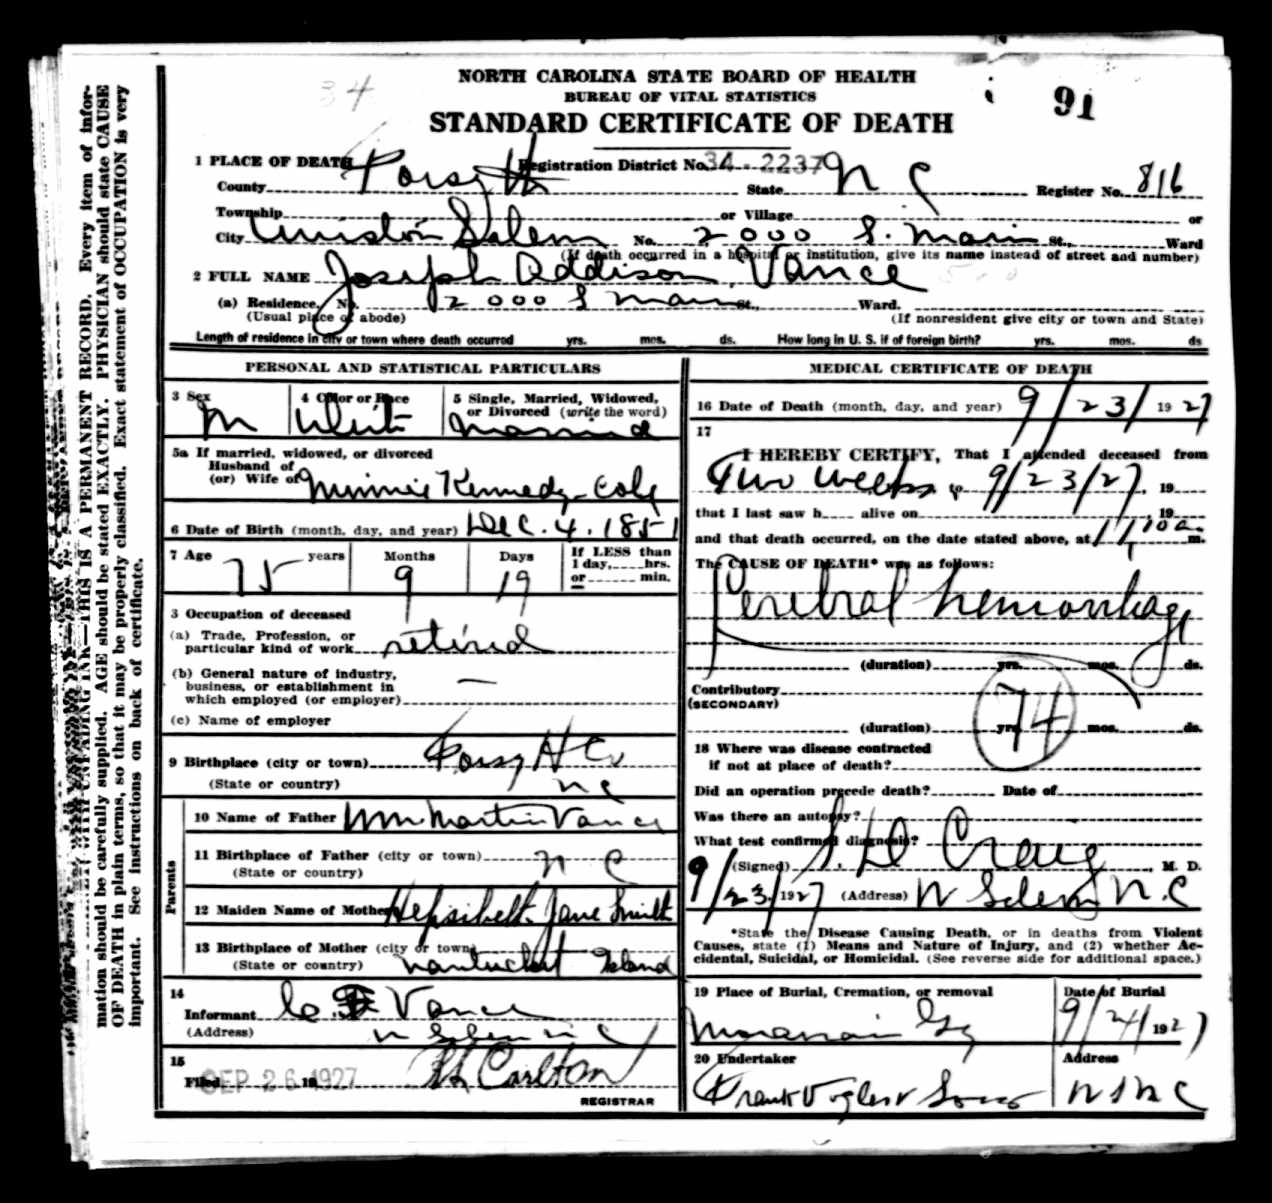 34
91
NORTH CAROLINA STATE BOARD OF HEALTH
BUREAU OF VITAL STATISTICS
STANDARD CERTIFICATE OF DEATH
1 PLACE OF DEATH Registration District No. 34-2237
County Forsyth State N C Register No. 816
Township or Village or
City Winston Salem No. 2000 S. Main St., Ward
(If death occurred in a hospital or institution, give its name instead of street and number)
2 FULL NAME Joseph Addison Vance
(a) Residence. No. 2000 S Main St., Ward.
(Usual place of abode) (If nonresident give city or town and State)
Length of residence in city or town where death occurred yrs. mos. ds. How long in U. S. if of foreign birth? yrs. mos. ds
PERSONAL AND STATISTICAL PARTICULARS
3 Sex M
4 Color or Race White
5 Single, Married, Widowed, or Divorced (write the word) Married
5a If married, widowed, or divorced
Husband of
(or) Wife of Minnie Kennedy Cole
6 Date of Birth (month, day, and year) Dec. 4. 1851
7 Age 75 years Months 9 Days 19 If LESS than 1 day, hrs. or min.
3 Occupation of deceased
(a) Trade, Profession, or
particular kind of work retired
(b) General nature of industry,
business, or establishment in
which employed (or employer) —
(c) Name of employer
9 Birthplace (city or town) Forsyth Co
(State or country) N C
Parents
10 Name of Father Wm Martin Vance
11 Birthplace of Father (city or town) N C
(State or country)
12 Maiden Name of Mother Hepsibeth Jane Smith
13 Birthplace of Mother (city or town)
(State or country) Nantucket Island
14
Informant Vance
(Address) W Salem N C
15
Filed SEP 26 1927 Carlton
REGISTRAR
MEDICAL CERTIFICATE OF DEATH
16 Date of Death (month, day, and year) 9/23/1927
17
I HEREBY CERTIFY, That I attended deceased from
Two weeks to 9/23/27, 19
that I last saw h alive on , 19
and that death occurred, on the date stated above, at 11,10 a. m.
The CAUSE OF DEATH* was as follows:
Cerebral hemorrhage
(duration) yrs. mos. ds.
Contributory
(SECONDARY)
(duration) yrs. mos. ds.
74
18 Where was disease contracted
if not at place of death?
Did an operation precede death? Date of
Was there an autopsy?
What test confirmed diagnosis?
(Signed) S. D Craig, M. D.
9/23/1927 (Address) W Salem N.C
*State the Disease Causing Death, or in deaths from Violent
Causes, state (1) Means and Nature of Injury, and (2) whether Ac-
cidental, Suicidal, or Homicidal. (See reverse side for additional space.)
19 Place of Burial, Cremation, or removal Date of Burial
Moravian Gy 9/24/1927
20 Undertaker Address
Frank Vogler & Sons W S N C
mation should be carefully supplied. AGE should be stated EXACTLY. PHYSICIAN should state CAUSE
OF DEATH in plain terms, so that it may be properly classified. Exact statement of OCCUPATION is very
important. See instructions on back of certificate.
WITH UNFADING INK—THIS IS A PERMANENT RECORD. Every item of infor-